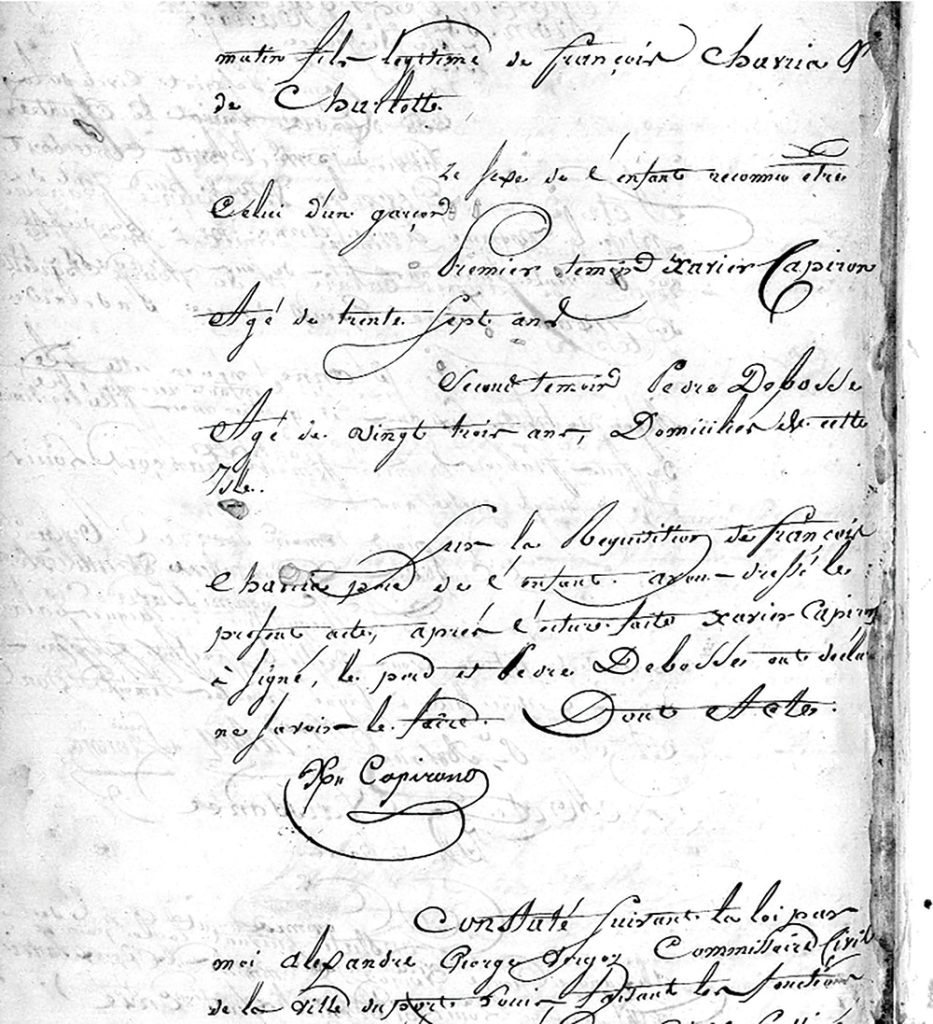 matin fils legitime de françois Charria &
de Charlotte.
Le sexe de l'enfant reconnu etre
Celui d'un garçon
Premier temoin Xavier Capiron
Agé de trente Sept ans
Second temoin Pevre Debosse
Agé de vingt trois ans, Domiciliés de cette
Isle.
Sur la Requisition de françois
Charria pere de l'enfant. avons dressé le
present acte, aprés lecture faite Xavier Capiron
à signé, le pere et Pevre Debosse ont décla
ne savoir le faire. Dont Acte.
Xer Capirono
Constaté suivant la loi par
moi alexandre George Commissaire Civil
de la Ville du port Louis faisant les fonctions